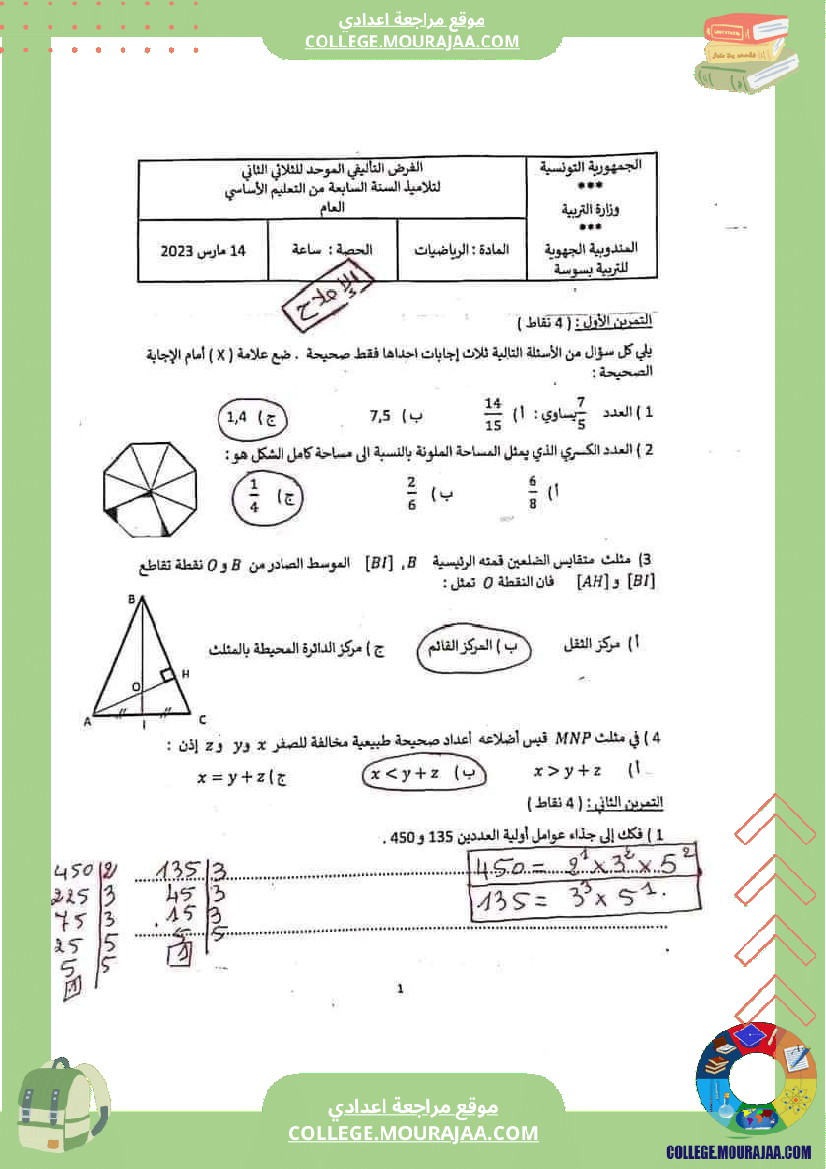 موقع مراجعة اعدادي
COLLEGE.MOURAJAA.COM
الجمهورية التونسية
***
وزارة التربية
***
المندوبية الجهوية
للتربية بسوسة
الفرض التأليفي الموحد للثلاثي الثاني
لتلاميذ السنة السابعة من التعليم الأساسي
العام
المادة : الرياضيات
الحصة : ساعة
14 مارس 2023
الإصلاح
التمرين الأول : ( 4 نقاط )
يلي كل سؤال من الأسئلة التالية ثلاث إجابات احداها فقط صحيحة . ضع علامة ( X ) أمام الإجابة
الصحيحة :
1 ) العدد 7/5 يساوي : أ) 14/15 ب) 7,5 ج) 1,4
2 ) العدد الكسري الذي يمثل المساحة الملونة بالنسبة الى مساحة كامل الشكل هو :
أ) 6/8 ب) 2/6 ج) 1/4
3) مثلث متقايس الضلعين قمته الرئيسية B ، [BI] الموسط الصادر من B و O نقطة تقاطع
[BI] و [AH] فان النقطة O تمثل :
أ) مركز الثقل ب ) المركز القائم ج ) مركز الدائرة المحيطة بالمثلث
B
H
O
A I C
4 ) في مثلث MNP قيس أضلاعه أعداد صحيحة طبيعية مخالفة للصفر x و y و z إذن :
أ) x > y + z ب) x < y + z ج) x = y + z
التمرين الثاني : ( 4 نقاط )
1 ) فكك إلى جذاء عوامل أولية العددين 135 و 450 .
450 = 2¹ x 3² x 5²
135 = 3³ x 5¹.
135 | 3
45 | 3
15 | 3
5 | 5
1
450 | 2
225 | 3
75 | 3
25 | 5
5 | 5
1
1
موقع مراجعة اعدادي
COLLEGE.MOURAJAA.COM
COLLEGE.MOURAJAA.COM